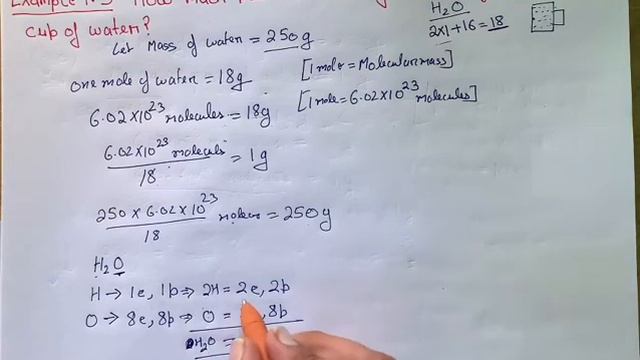 Example 1.3 How much
cup of water?
H₂O
2×1+16=18
Let Mass of water = 250g
one mole of water = 18g
[1 mole = Molecular mass]
6.02×10²³ molecules = 18g
[1 mole = 6.02×10²³ molecules]
6.02×10²³ molecules / 18 = 1g
250 × 6.02 × 10²³ / 18 molecu = 250g
H₂O
H → 1e, 1p ⇒ 2H = 2e, 2p
O → 8e, 8p ⇒ O = , 8p
H₂O =